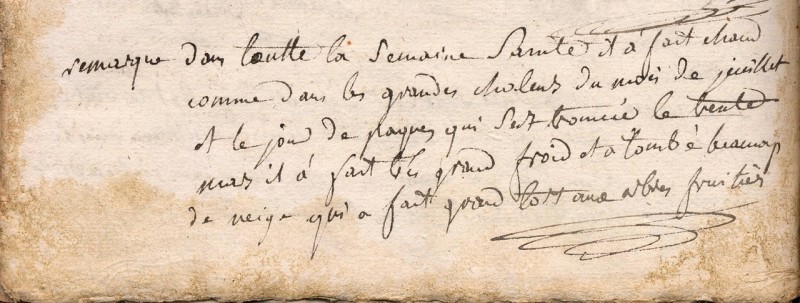 remarque dans toutte la Semaine Sainte it à fait chaud
comme dans les grandes chaleus du mois de juillet
et le jour de paques qui s'est trouvé le trente
mars il à fait très grand froid et a tombé beaucoup
de neige qui a fait grand tort aux arbres fruitiés